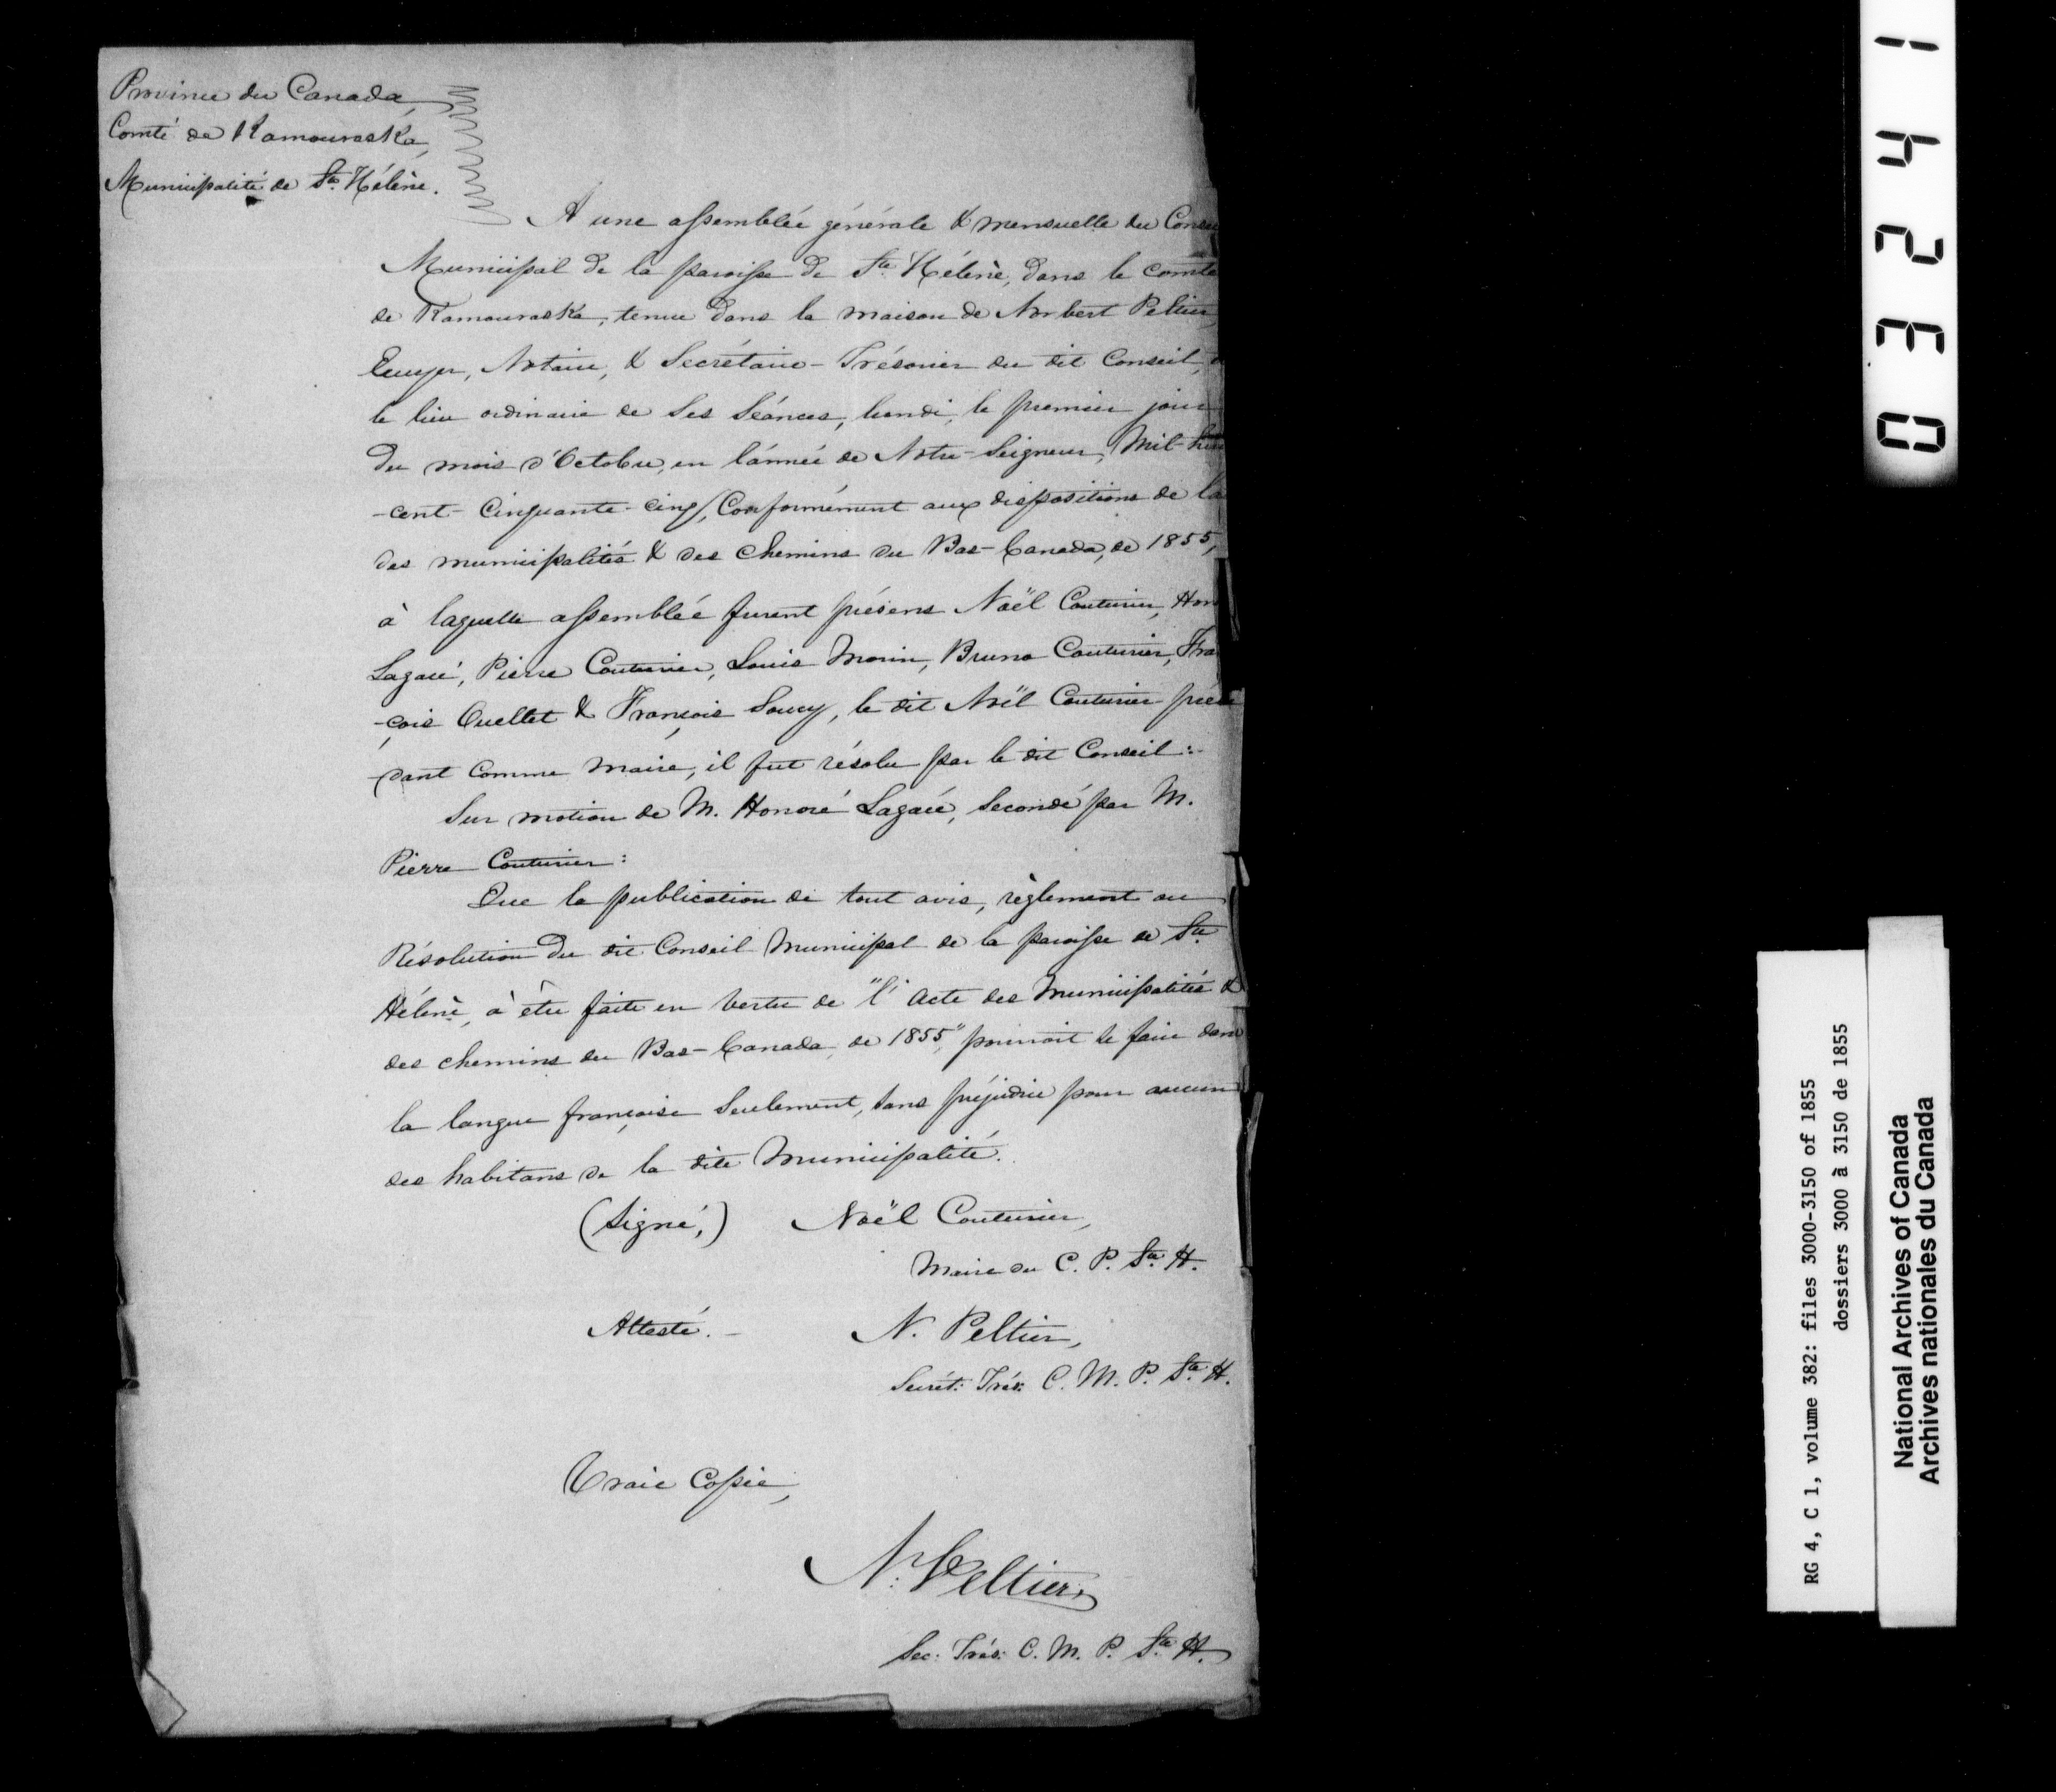 Province du Canada,
Comté de Kamouraska,
Municipalité de Ste. Hélène.
A une assemblée générale & mensuelle du Conse
Municipal de la paroisse de Ste. Hélène, dans le comté
de Kamouraska, tenue dans la maison de Norbert Peltier,
Ecuyer, Notaire, & Secrétaire-Trésorier du dit Conseil,
le lieu ordinaire de ses séances, lundi, le premier jour
du mois d'Octobre, en l'année de Notre-Seigneur, Mil-hui
-cent-cinquante-cinq, Conformément aux dispositions de la
des municipalités & des chemins du Bas-Canada, de 1855,
à laquelle assemblée furent présens Noël Couturier, Hon
Lagacé, Pierre Couturier, Louis Morin, Bruno Couturier, Fra
-çois Ouellet & François Soucy, le dit Noël Couturier prési
-dant comme maire, il fut résolu par le dit Conseil :-
Sur motion de M. Honoré Lagacé, secondé par M.
Pierre Couturier :
Que la publication de tout avis, règlement ou
Résolution du dit Conseil Municipal de la paroisse de Ste.
Hélène, à être faite en vertu de "l'Acte des Municipalités &
des chemins du Bas-Canada, de 1855," pourrait se faire dans
la langue française seulement, sans préjudice pour aucun
des habitans de la dite Municipalité.
(Signé,) Noël Couturier,
Maire du C. P. Ste. H.
Attesté. - N. Peltier,
Secrét: Trés: C. M. P. Ste. H.
Vraie Copie,
N: Peltier,
Sec: Trés: C. M. P. Ste. H.
03241
RG 4, C 1, volume 382: files 3000-3150 of 1855
dossiers 3000 à 3150 de 1855
National Archives of Canada
Archives nationales du Canada